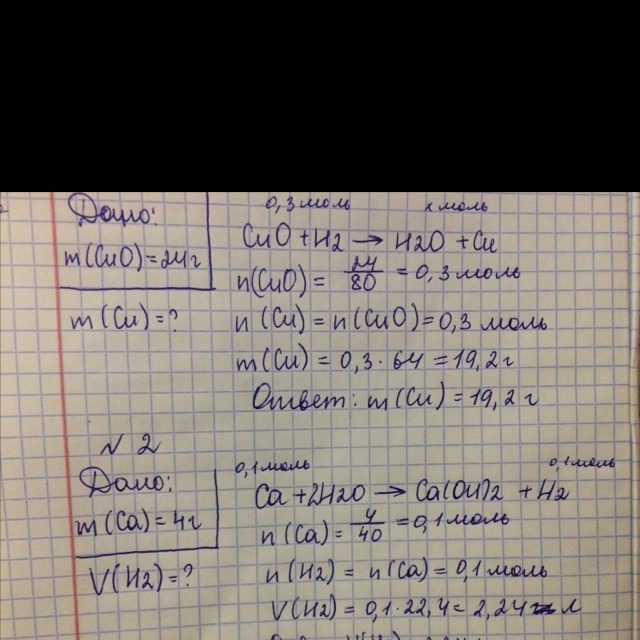 Дано:
m(CuO)=24г
m(Cu)=?
0,3моль x моль
CuO+H2→H2O+Cu
n(CuO)= 24/80 =0,3моль
n(Cu)=n(CuO)=0,3 моль
m(Cu)=0,3·64=19,2г
Ответ: m(Cu)=19,2г
№2
Дано:
m(Ca)=4г
V(H2)=?
0,1моль 0,1моль
Ca+2H2O→Ca(OH)2+H2
n(Ca)= 4/40 =0,1моль
n(H2)=n(Ca)=0,1моль
V(H2)=0,1·22,4=2,24 л